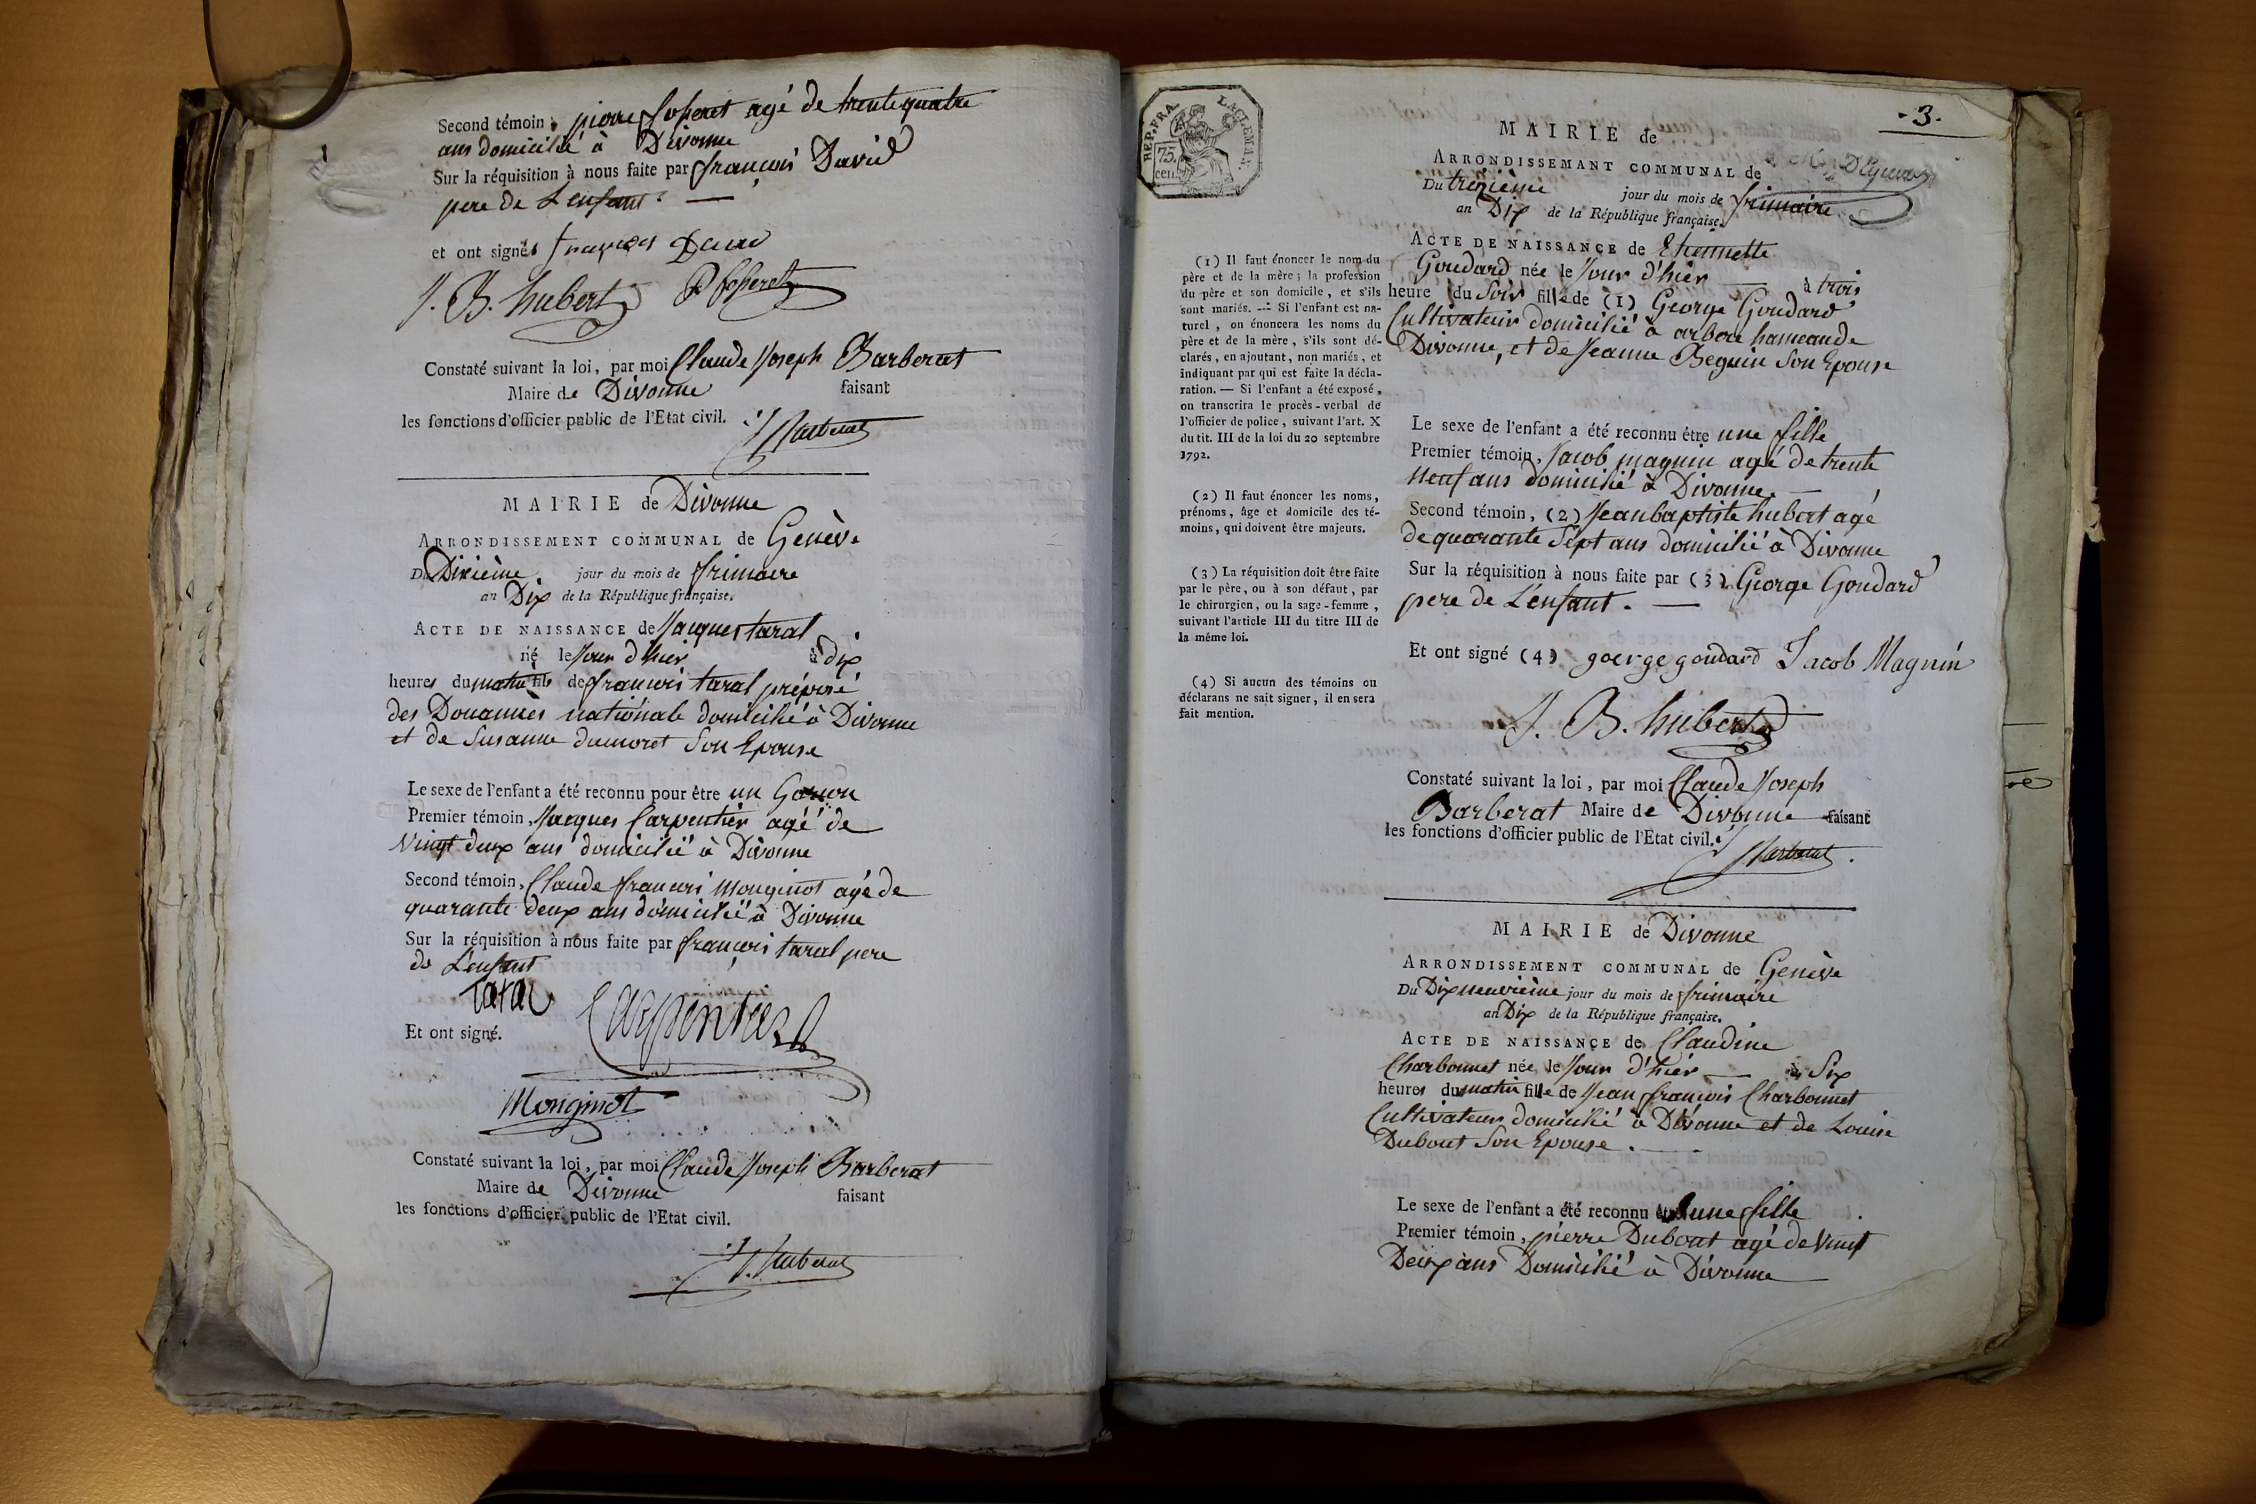 Second témoin, pierre Coperet agé de trente quatre
ans domicilié à Divonne
Sur la réquisition à nous faite par françois David
pere de L'enfant.
et ont signés françois David
J. B. hubert P Coperet
Constaté suivant la loi, par moi Claude Joseph Barberat
Maire de Divonne faisant
les fonctions d'officier public de l'Etat civil.
Barberat
MAIRIE de Divonne
ARRONDISSEMENT COMMUNAL de Genève
Du Dixième jour du mois de frimaire
an Dix de la République française.
ACTE DE NAISSANCE de Jacques taral
né le Jour d'hier à dix
heures du matin fils de francois taral préposé
des Douannes nationale domicilié à Divonne
et de Susanne dumoret Son Epouse
Le sexe de l'enfant a été reconnu pour être un Garcon
Premier témoin, Jacques Carpentier agé de
Vingt deux ans domicilié à Divonne
Second témoin, Claude francois Monginot agé de
quarante deux ans domicilié à Divonne
Sur la réquisition à nous faite par françois taral pere
de L'enfant
Taral
Carpentier
Et ont signé.
Monginot
Constaté suivant la loi, par moi Claude Joseph Barberat
Maire de Divonne faisant
les fonctions d'officier public de l'Etat civil.
Barberat
REP. FRA.
75.
cen.
- 3 -
MAIRIE de
ARRONDISSEMANT COMMUNAL de
Du treizième jour du mois de frimaire
an Dix de la République française.
ACTE DE NAISSANCE de Etiennette
Goudard née le Jour d'hier à trois
heure du Soir fille de (1) George Goudard
Cultivateur domicilié à arbere hameau de
Divonne, et de Jeanne Beguin Son Epouse
Le sexe de l'enfant a été reconnu être une fille
Premier témoin, Jacob magnin agé de trente
neuf ans domicilié à Divonne.
Second témoin, (2) Jean baptiste hubert agé
de quarante Sept ans domicilié à Divonne
Sur la réquisition à nous faite par (3) George Goudard
pere de L'enfant.
Et ont signé (4) goerge goudard Jacob Magnin
J. B. hubert
Constaté suivant la loi, par moi Claude Joseph
Barberat Maire de Divonne faisant
les fonctions d'officier public de l'Etat civil.
Barberat
(1) Il faut énoncer le nom du
père et de la mère; la profession
du père et son domicile, et s'ils
sont mariés. — Si l'enfant est na-
turel, on énoncera les noms du
père et de la mère, s'ils sont dé-
clarés, en ajoutant, non mariés, et
indiquant par qui est faite la décla-
ration. — Si l'enfant a été exposé,
on transcrira le procès-verbal de
l'officier de police, suivant l'art. X
du tit. III de la loi du 20 septembre
1792.
(2) Il faut énoncer les noms,
prénoms, âge et domicile des té-
moins, qui doivent être majeurs.
(3) La réquisition doit être faite
par le père, ou à son défaut, par
le chirurgien, ou la sage-femme,
suivant l'article III du titre III de
la même loi.
(4) Si aucun des témoins ou
déclarans ne sait signer, il en sera
fait mention.
MAIRIE de Divonne
ARRONDISSEMENT COMMUNAL de Genève
Du Dixneuvième jour du mois de frimaire
an Dix de la République française.
ACTE DE NAISSANCE de Claudine
Charbonnet née le Jour d'hier à Six
heures du matin fille de Jean françois Charbonnet
Cultivateur domicilié à Divonne et de Louise
Dubout Son Epouse.
Le sexe de l'enfant a été reconnu être une fille
Premier témoin, pierre Dubout agé de Vingt
Deux ans Domicilié à Divonne